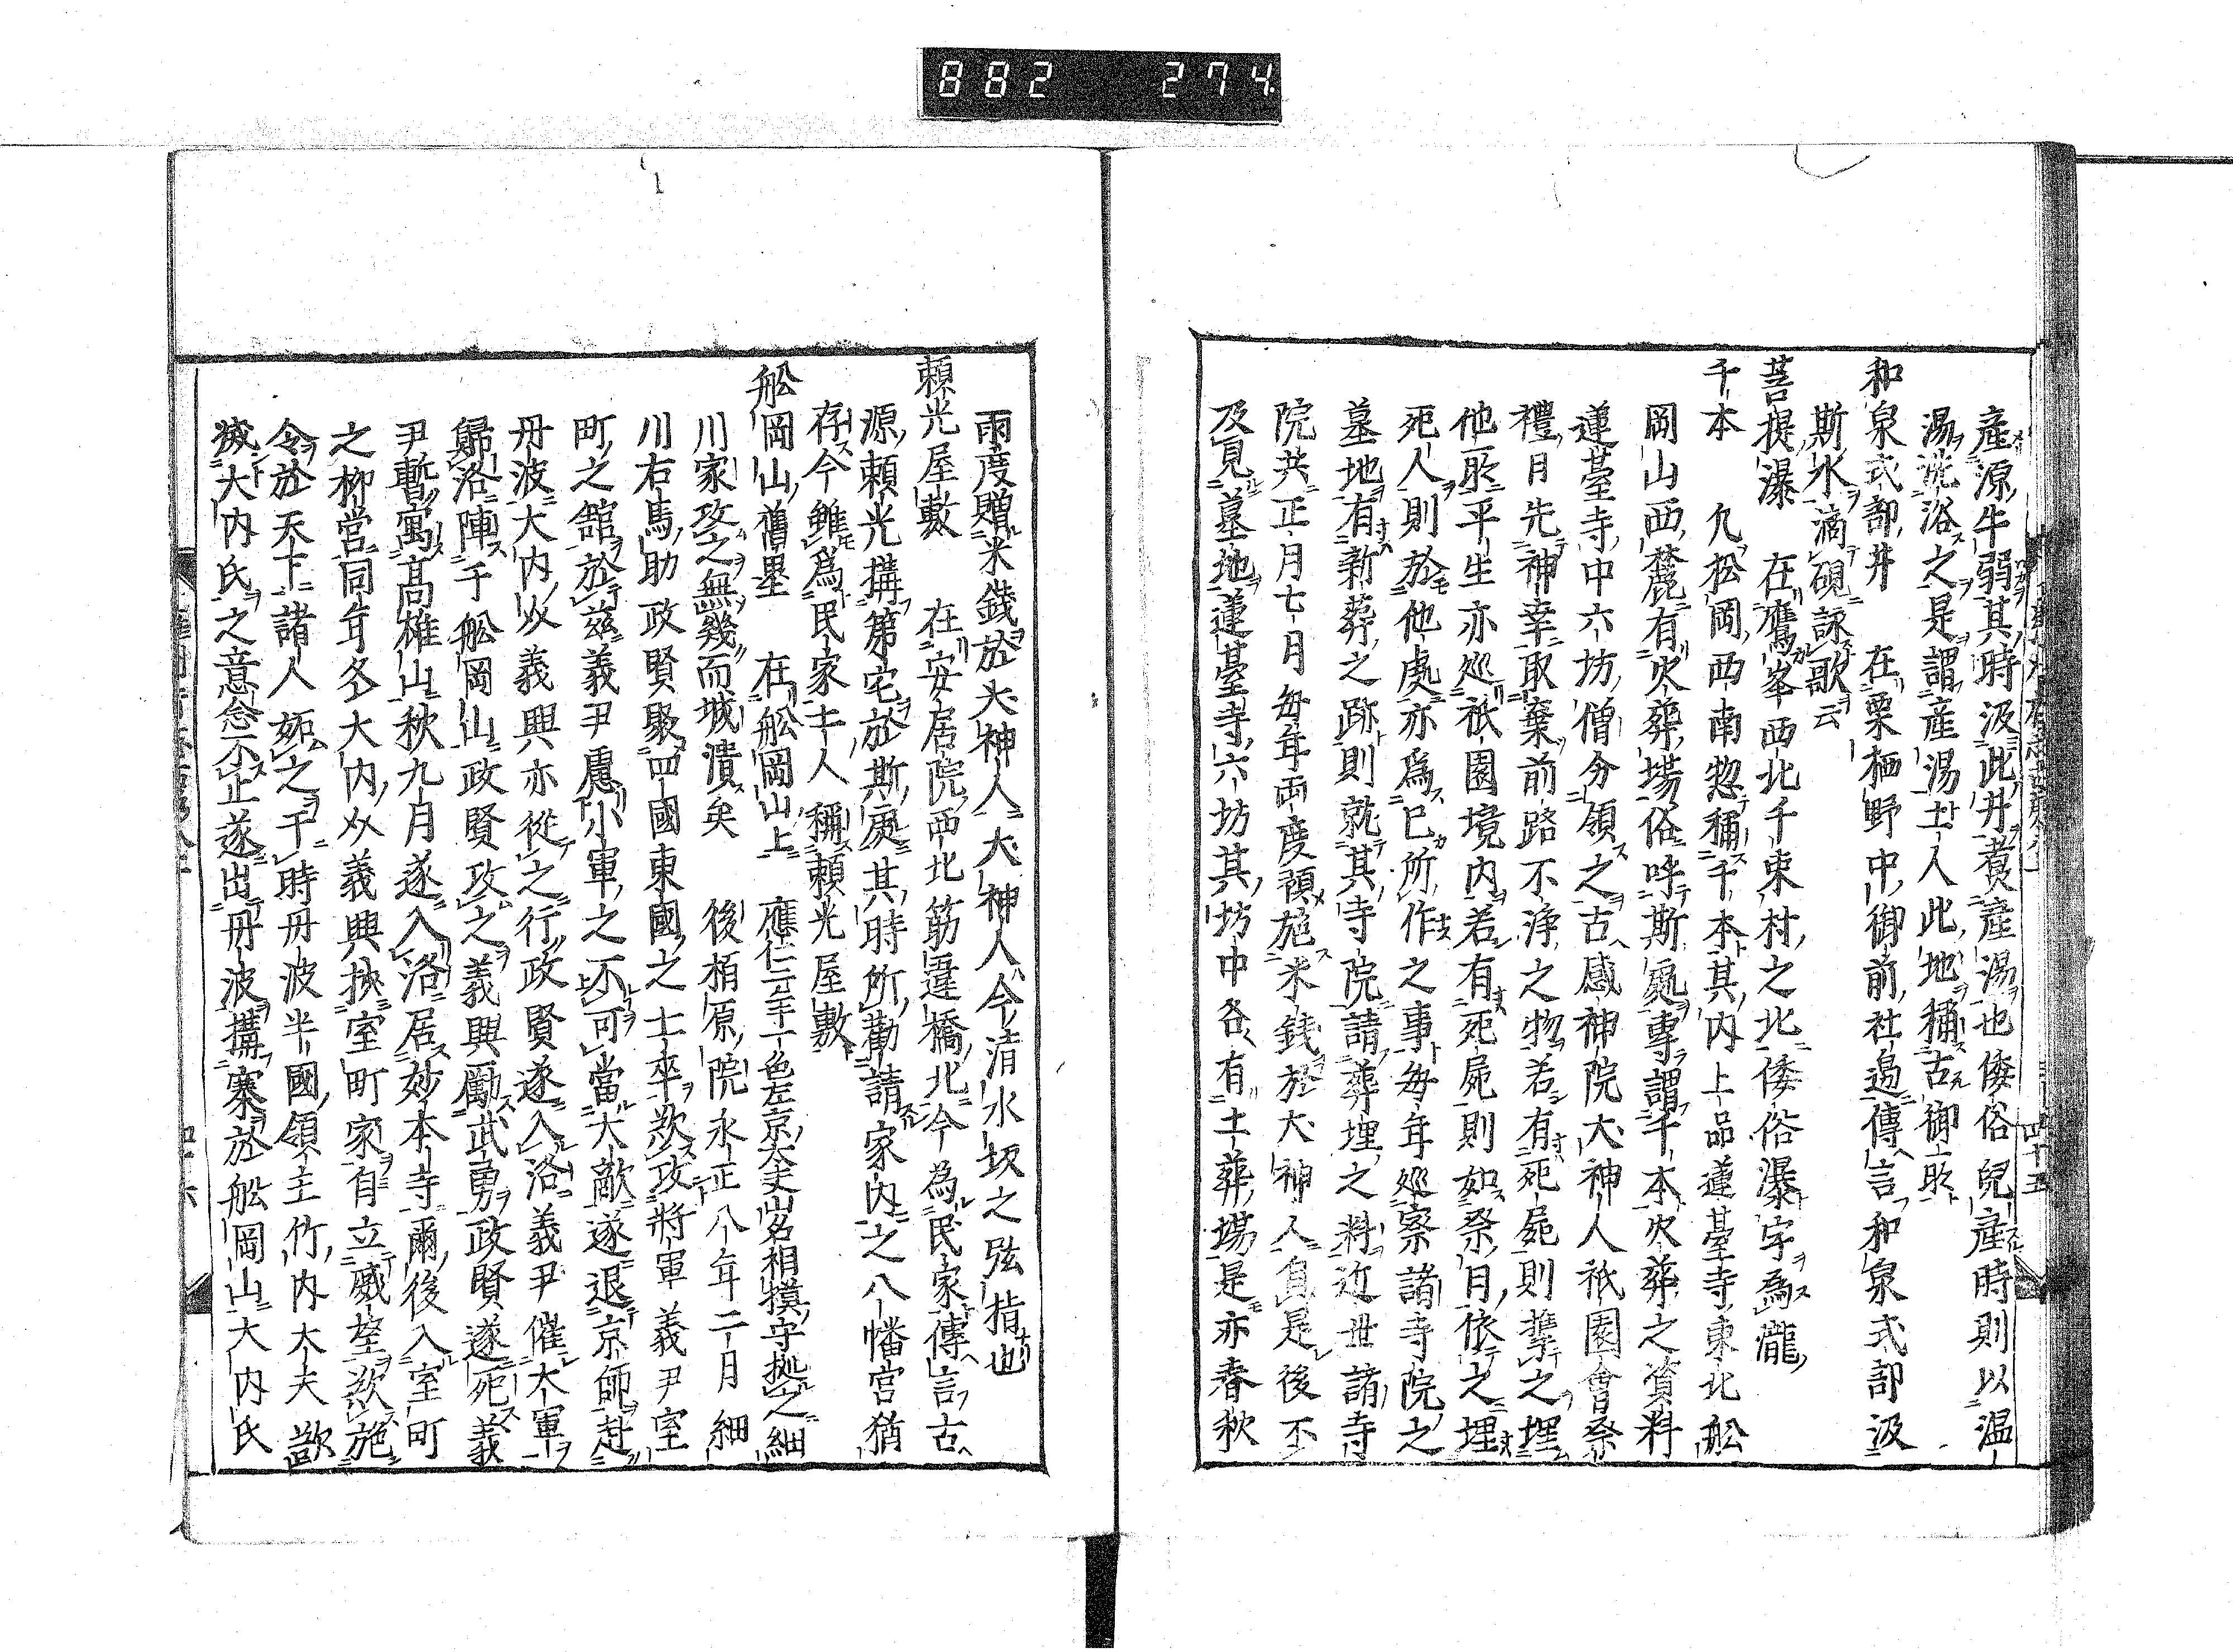 882 274
産源牛弱其時汲此井煮産湯也倭俗兒産時則以温
湯洗浴之是謂産湯土人此地稱古御所
和泉式部井 在栗栖野中御前社邉傳言和泉式部汲
斯水滴硯詠歌云
菩提瀑 在鷹峯西北千束村之北倭俗瀑字爲瀧
千本 凡松岡西南惣稱千本其内上品蓮臺寺東北舩
岡山西麓有火葬場俗呼斯處專謂千本火葬之資料
蓮臺寺中六坊僧分領之古感神院犬神人祇園會祭
禮日先神幸取棄前路不浄之物若有死屍則挙之埋
他所平生亦巡祇園境内若有死屍則如祭日依之埋
死人則於他處亦爲己所作之事毎年巡察諸寺院之
墓地有新葬之跡則就其寺院請葬埋之料近世諸寺
院共正月七月毎年両度預施米銭於犬神人自是後不
及見墓地蓮臺寺六坊其坊中各有土葬場是亦春秋
両度贈米錢於犬神人犬神人今清水坂之弦指也
頼光屋敷 在安居院西北筋違橋北今為民家傳言古
源頼光搆第宅於斯處其時所勸請家内之八幡宮猶
存今雖爲民家土人稱頼光屋敷
舩岡山舊壘 在舩岡山上 應仁元年一色左京大夫山名相摸守拠之細
川家攻之無幾而城潰矣 後栢原院永正八年二月細
川右馬助政賢聚四國東國之士卒欲攻將軍義尹室
町之舘於茲義尹慮小軍之不可當大敵遂退京師赴
丹波大内义義興亦從之行政賢遂入洛義尹催大軍
歸洛陣于舩岡山政賢攻之義興勵武勇政賢遂死義
尹暫寓髙雄山秋九月遂入洛居妙本寺爾後入室町
之柳営同年冬大内义義興挾室町家自立威望欲施
令於天下諸人妬之于時丹波半國領主竹内大夫欲
滅大内氏之意念不止遂出丹波搆寨於舩岡山大内氏